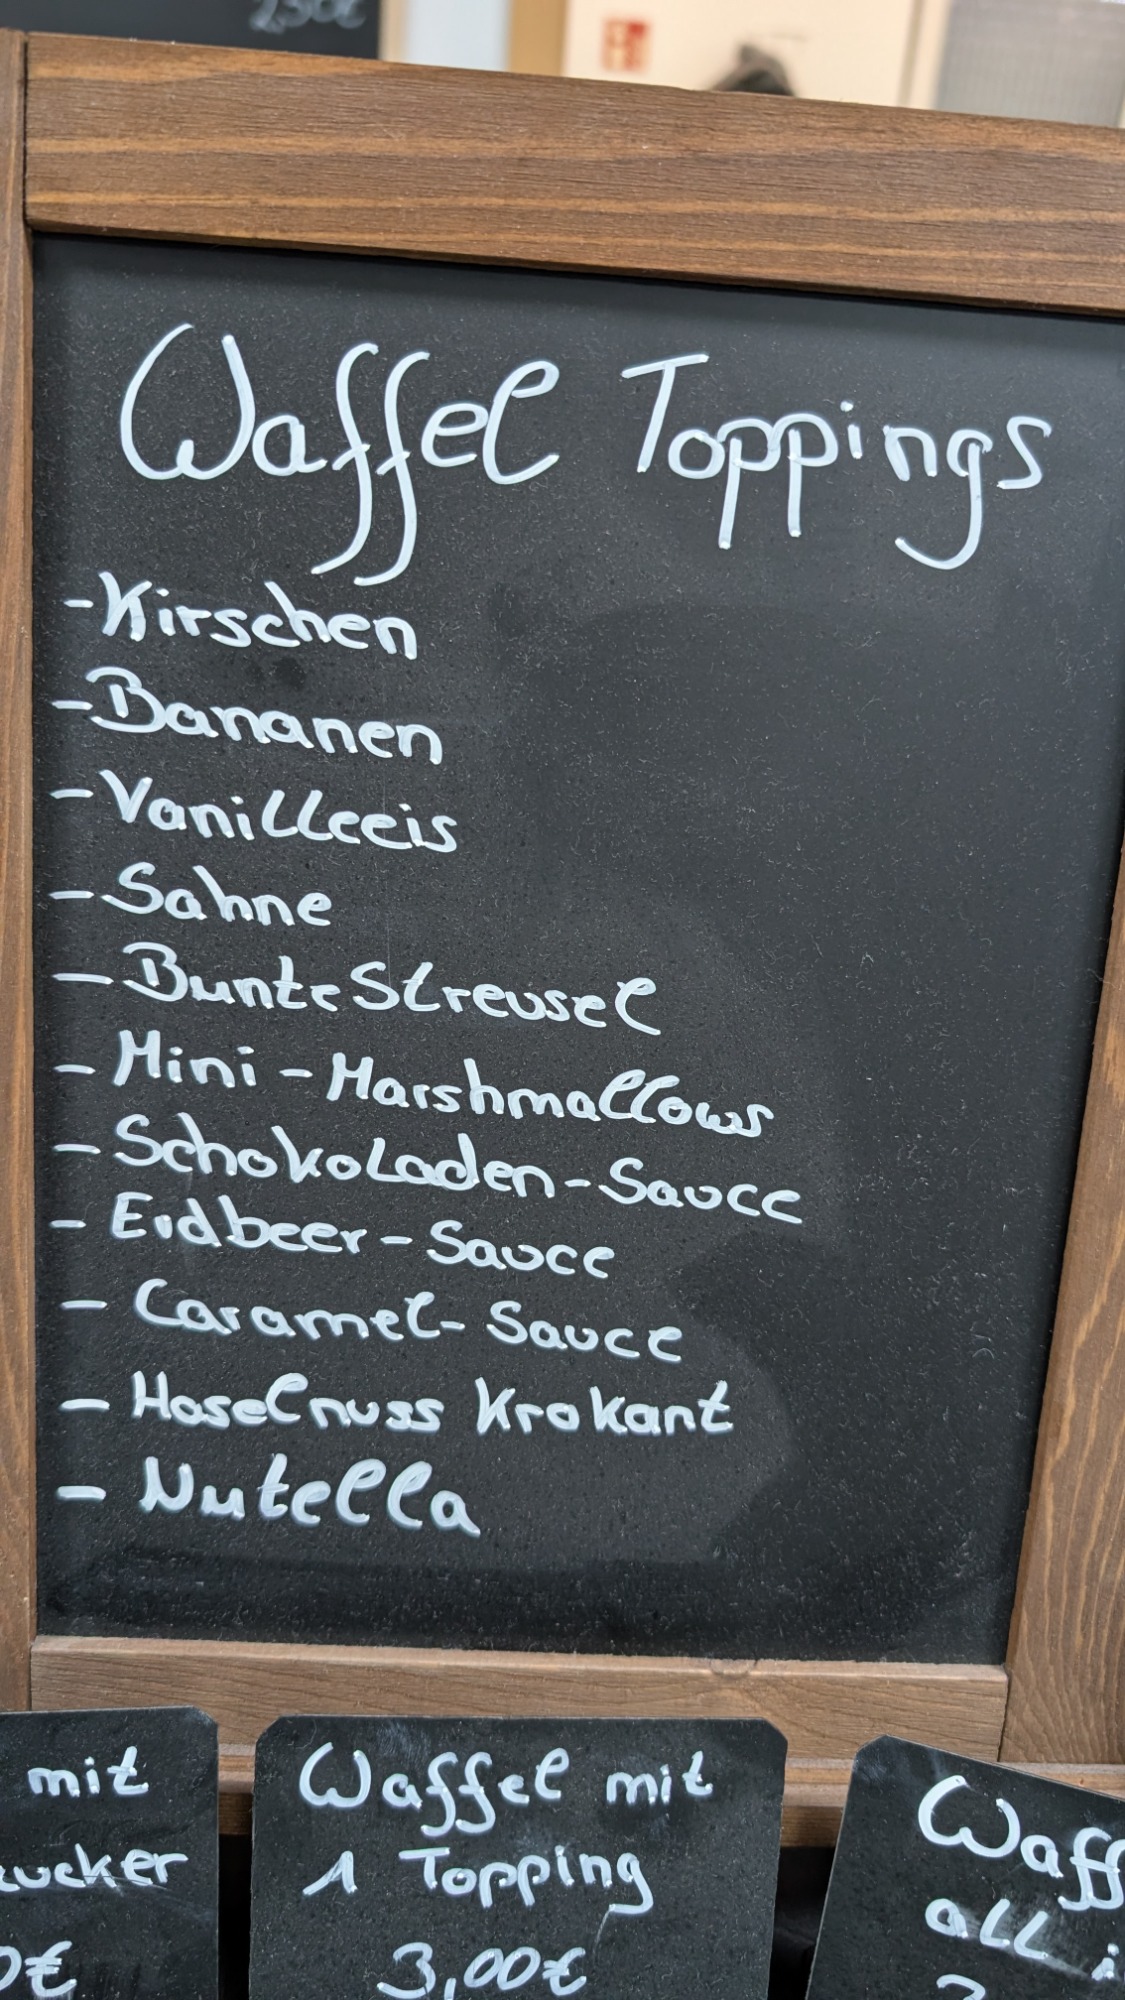 2,50€
Waffel Toppings
-Kirschen
-Bananen
-Vanilleeis
-Sahne
-Bunte Streusel
- Mini-Marshmallows
- Schokoladen-Sauce
- Erdbeer-Sauce
- Caramel-Sauce
- Haselnuss Krokant
- Nutella
mit
ucker
0€
Waffel mit
1 Topping
3,00€
Waff
all i